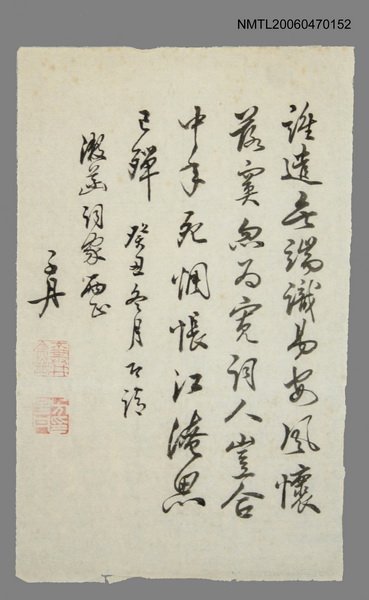 NMTL20060470152
誰遣無端識易安風懷
落寞忽為寬詞人豈合
中年死惆悵江淹墨
已殫 癸丑冬月
詞家兩正
子丹